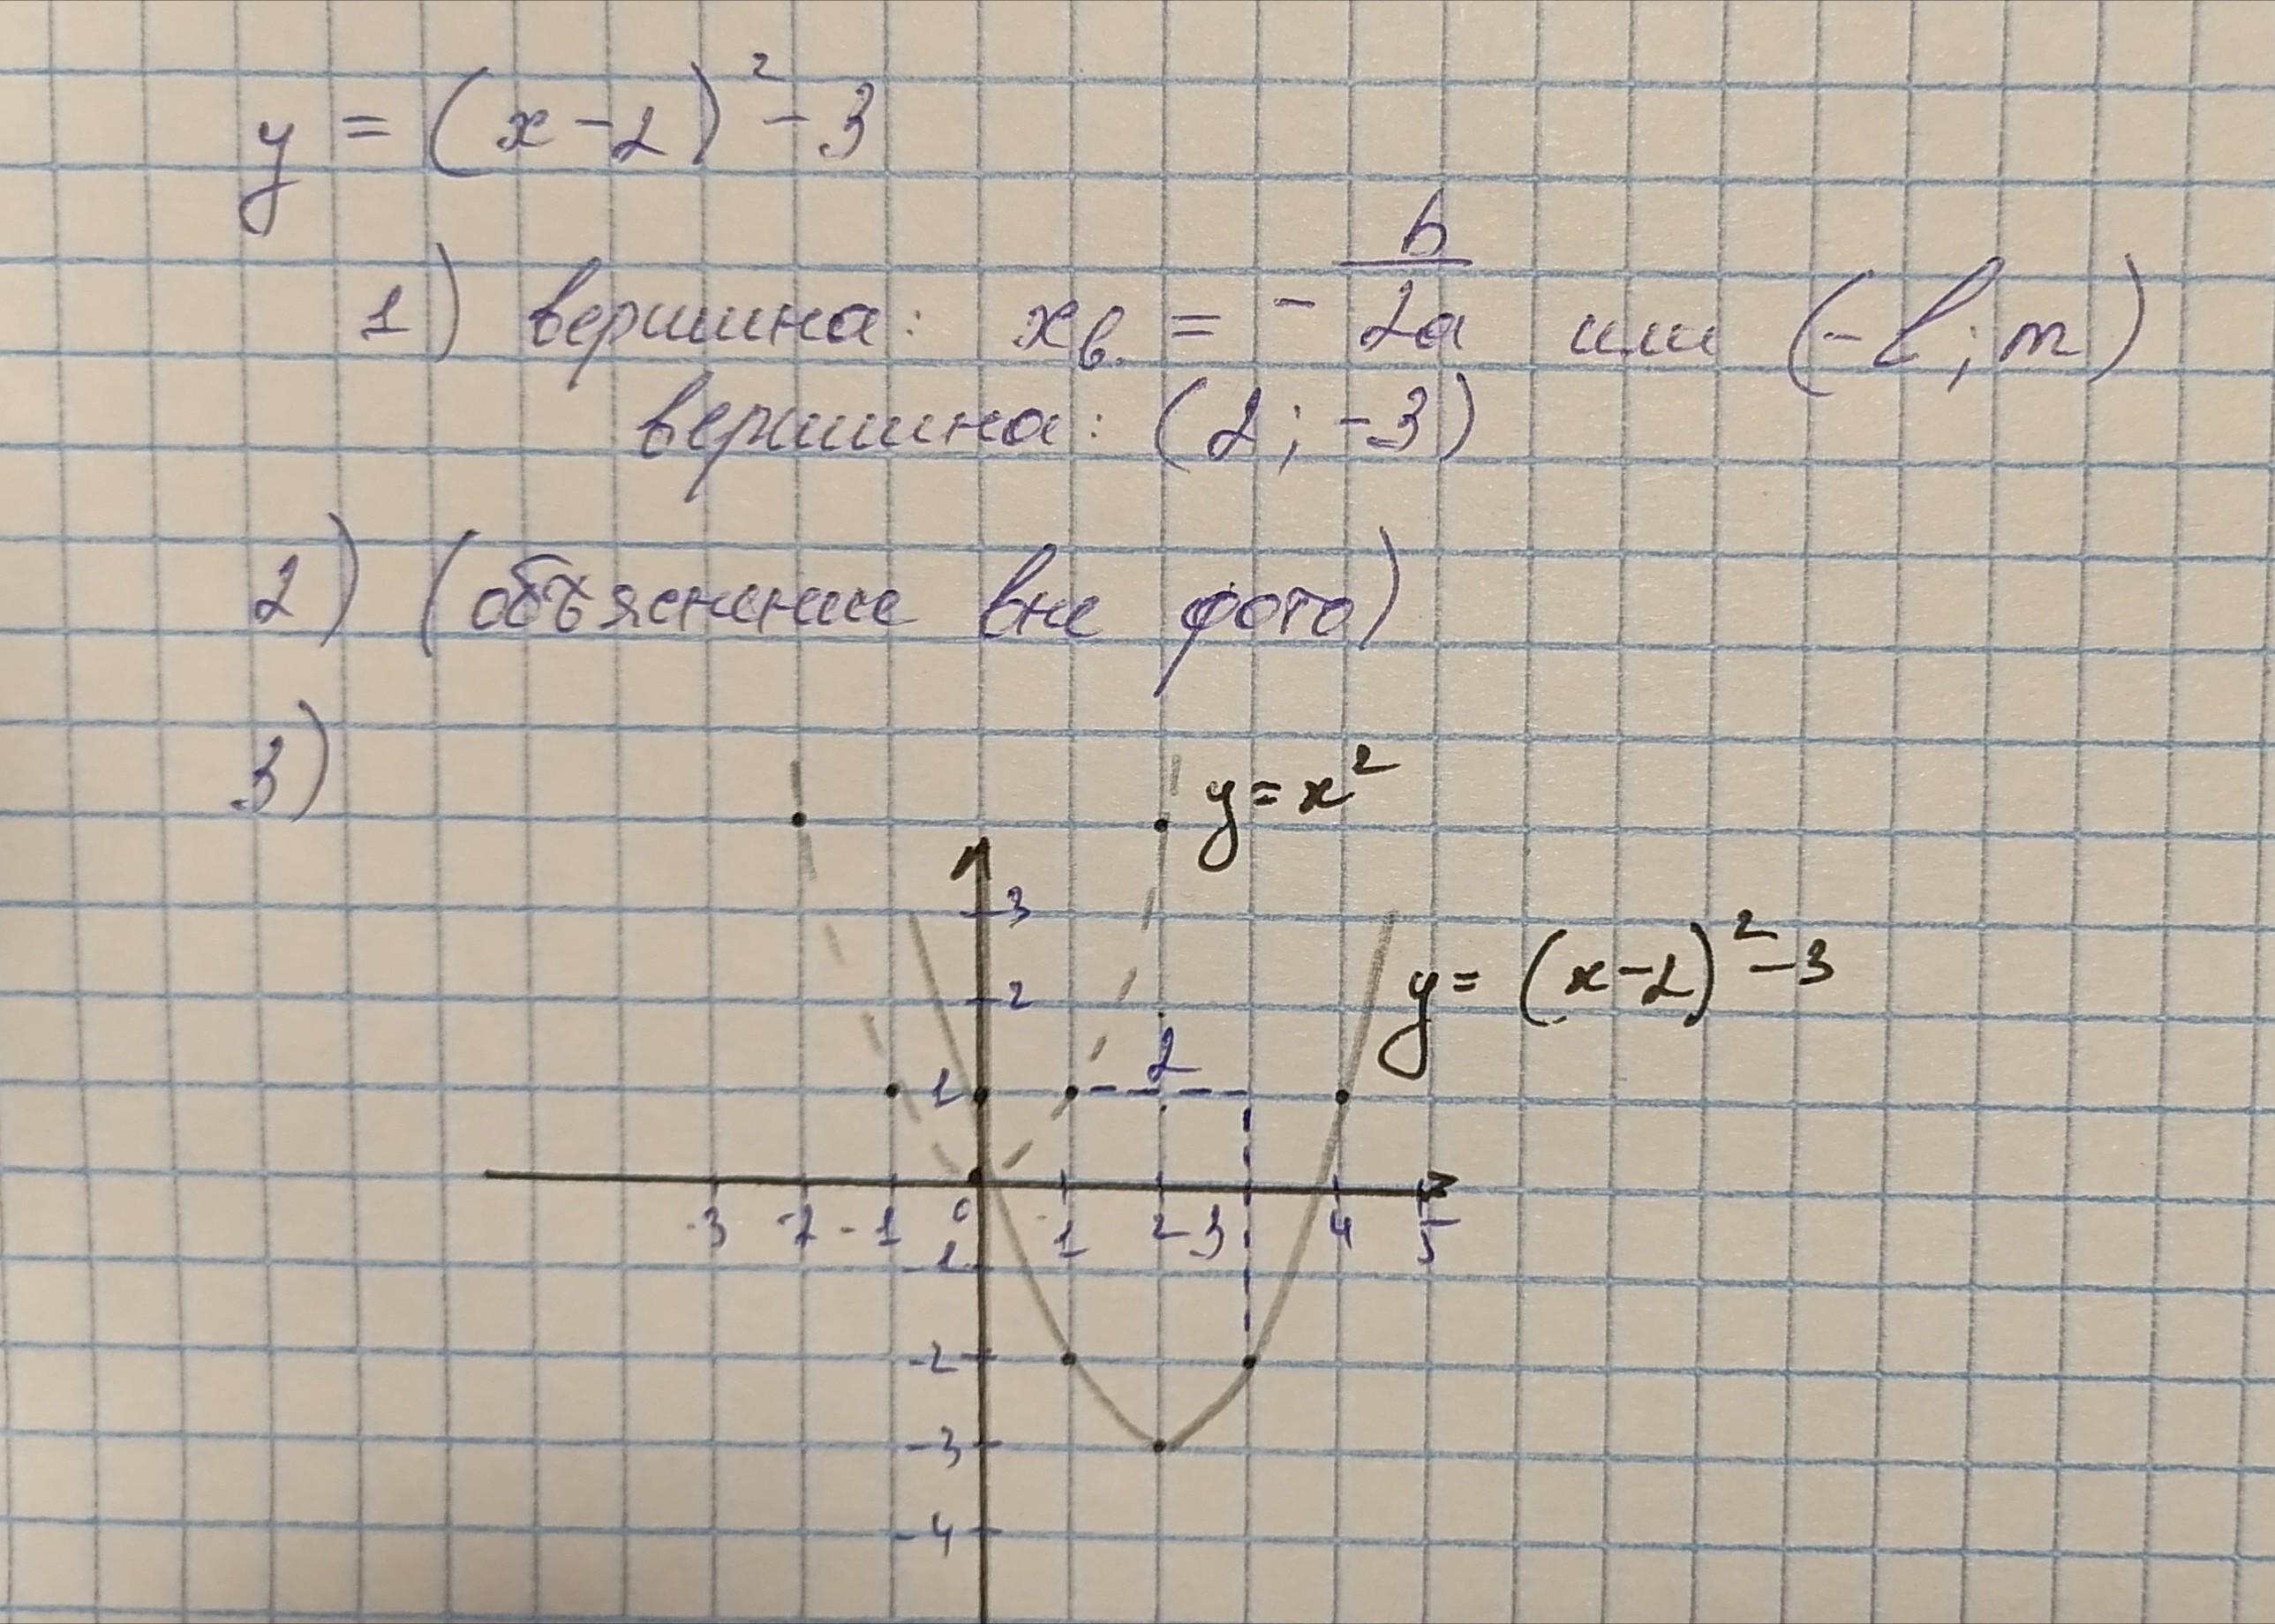 y = (x - 2)² - 3
1) вершина: xв. = - b/2a или (-l; m)
вершина: (2; -3)
2) (объяснение вне фото)
3)
y = x²
3
y = (x-2)² - 3
2
2
1
-3 -2 -1 0 1 2 3 4 5
-1
-2
-3
-4